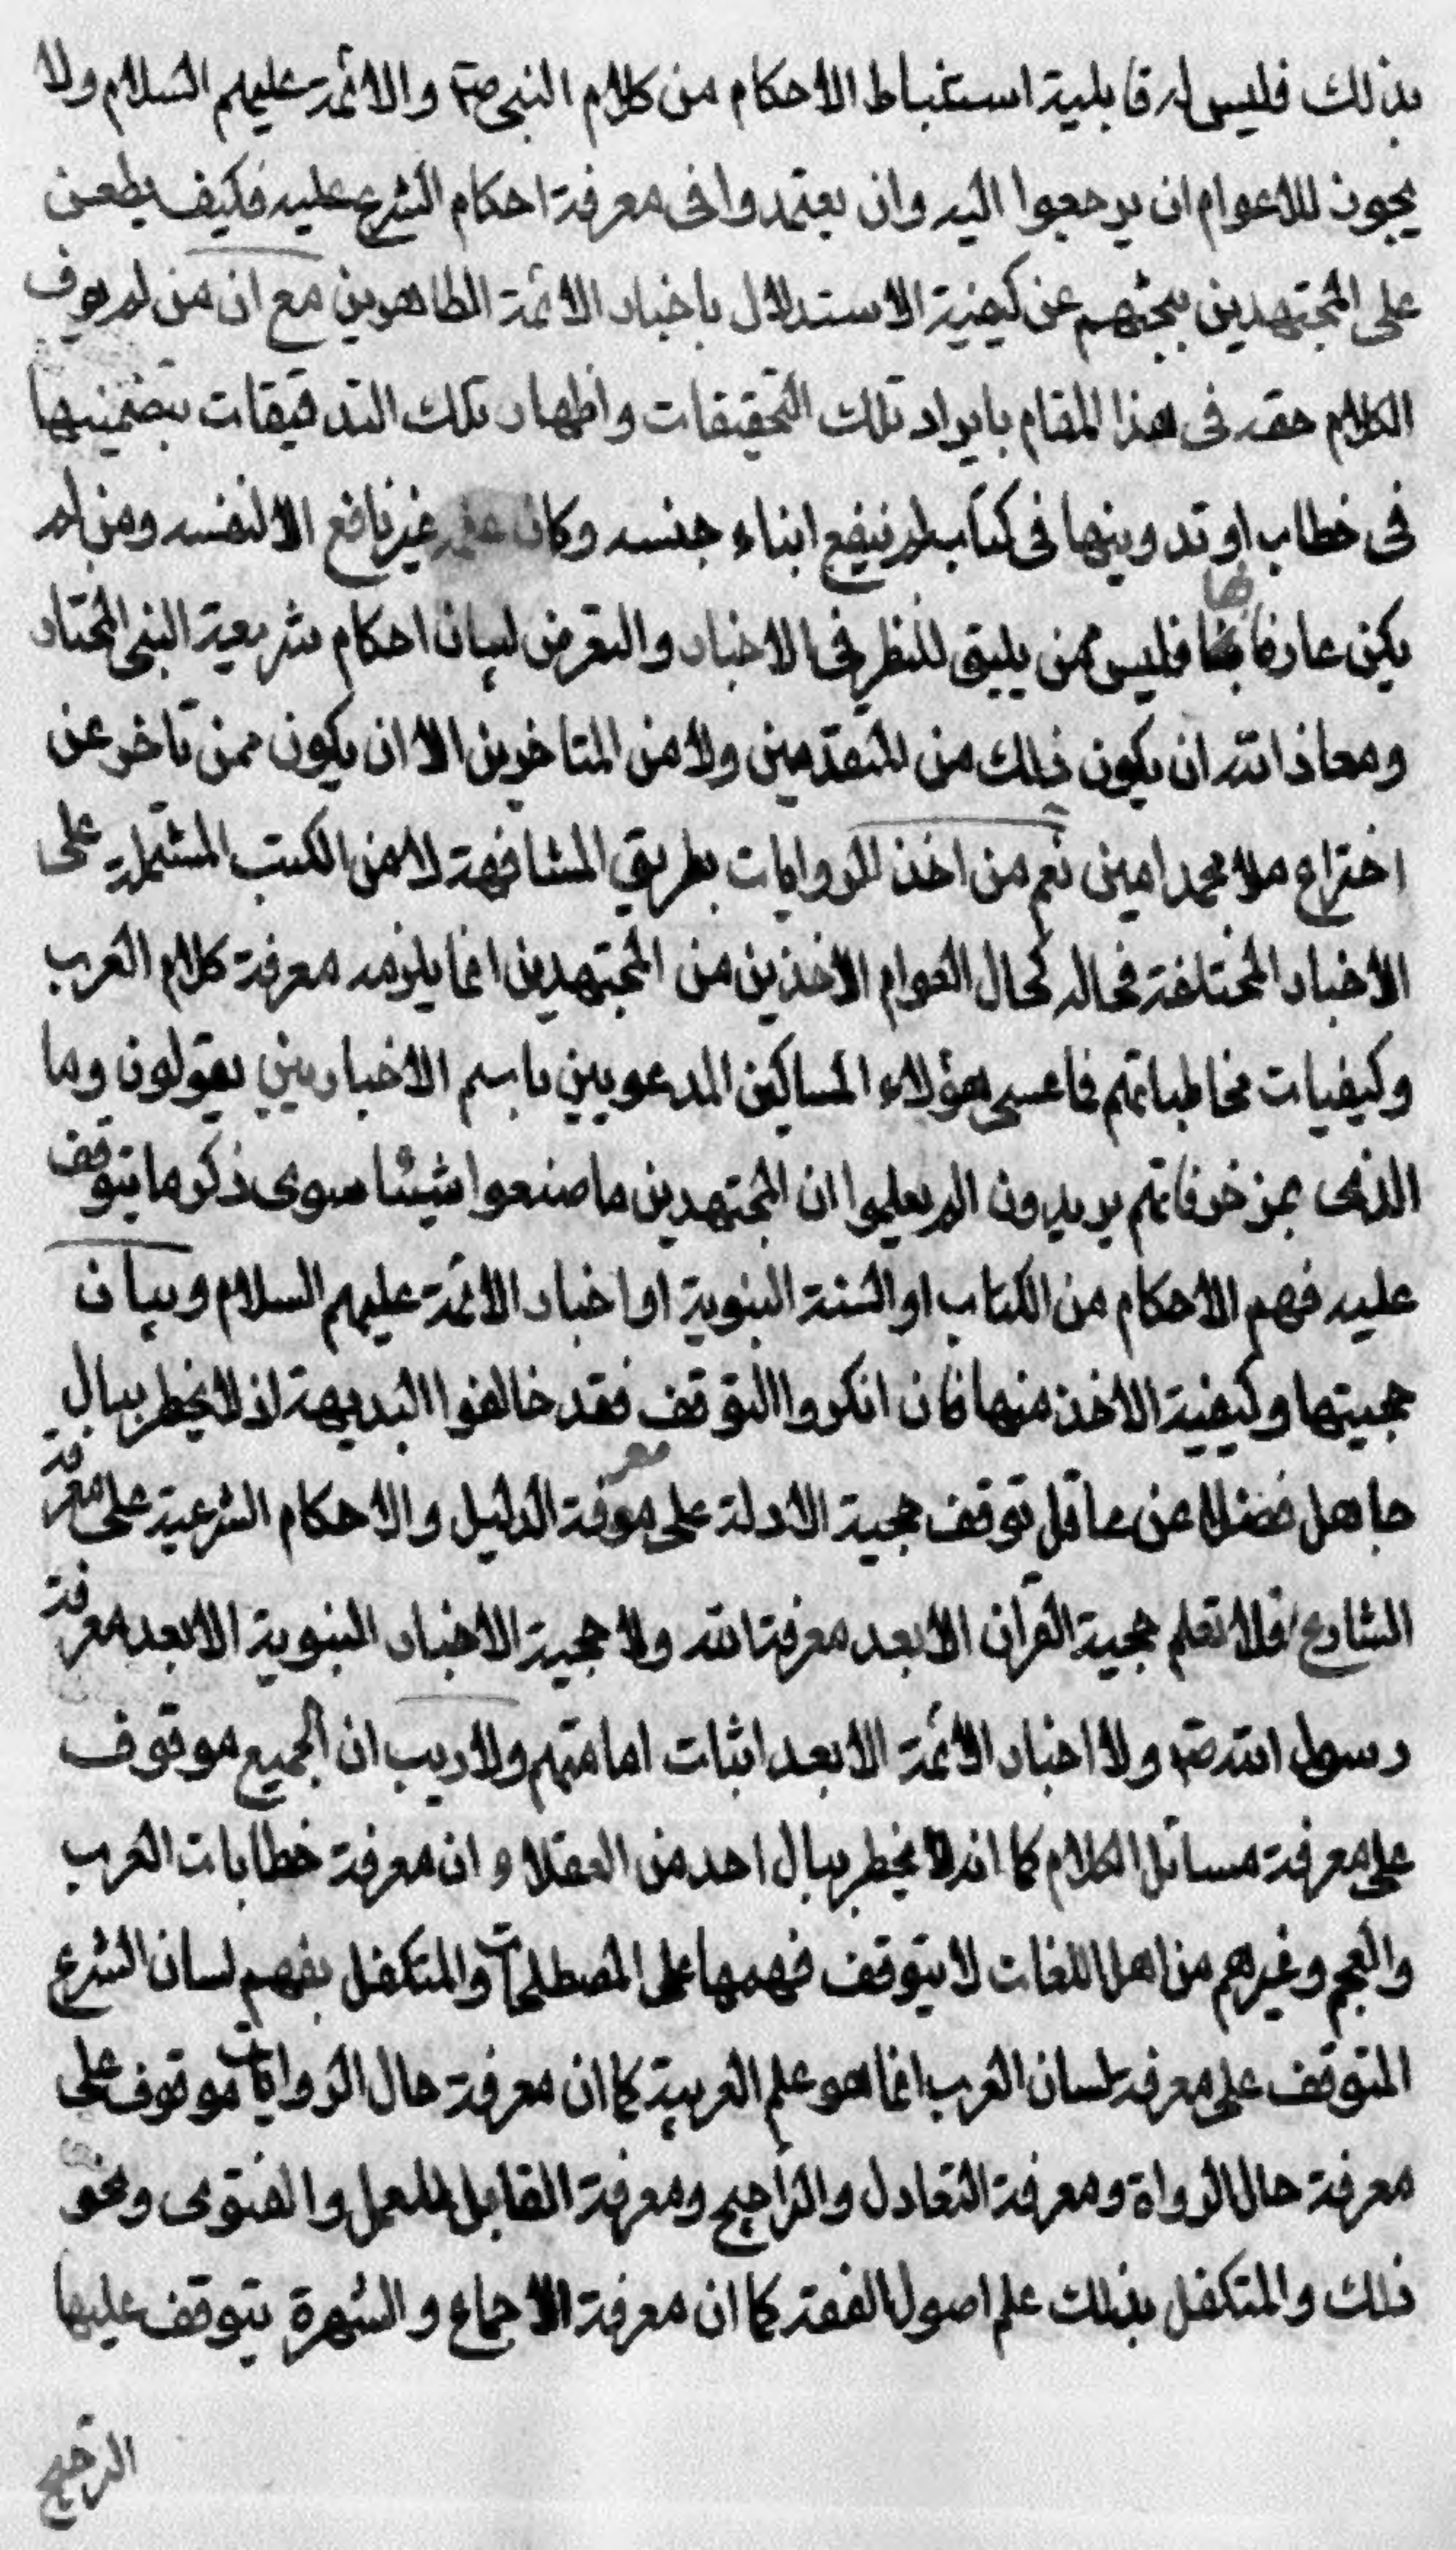 بذلك فليس له قابلية استنباط الاحكام من كلام النبى ص والائمة عليهم السلام ولا
يجوز للاعوام ان يرجعوا اليه وان يعتمدوا فى معرفة احكام الشرع عليه فكيف يطعن
على المجتهدين ببحثهم عن كيفية الاستدلال باخبار الائمة الطاهرين مع ان من لم يوف
الكلام حقه فى هذا المقام بايراد تلك التحقيقات واظهار تلك التدقيقات بتضمينها
فى خطاب او تدوينها فى كتاب لم ينفع ابناء جنسه وكان علمه غير نافع الا لنفسه ومن لم
يكن عارفا بها فليس ممن يليق للنظر فى الاخبار والتعرض لبيان احكام شريعة النبى المختار
ومعاذ الله ان يكون ذلك من المتقدمين ولا من المتاخرين الا ان يكون ممن تاخر عن
اختراع ملا محمد امين نعم من اخذ الروايات بطريق المشافهة لا من الكتب المشتملة على
الاخبار المختلفة فحاله كحال العوام الاخذين من المجتهدين انما يلزمه معرفة كلام العرب
وكيفيات مخاطباتهم فما عسى هؤلاء المساكين المدعويين باسم الاخباريين يقولون وما
الذى بمزخرفاتهم يريدون الم يعلموا ان المجتهدين ما صنعوا شيئا سوى ذكر ما يتوقف
عليه فهم الاحكام من الكتاب او السنة النبوية او اخبار الائمة عليهم السلام وبيان
حجيتها وكيفية الاخذ منها فان انكروا التوقف فقد خالفوا البديهة اذ لا يخطر ببال
جاهل فضلا عن عاقل توقف حجية الادلة على معرفة الدليل والاحكام الشرعية على معرفة
الشارع فلا تعلم حجية القران الا بعد معرفة الله ولا حجية الاخبار النبوية الا بعد معرفة
رسول الله ص ولا اخبار الائمة الا بعد اثبات امامتهم ولا ريب ان الجميع موقوف
على معرفة مسائل الكلام كما انه لا يخطر ببال احد من العقلاء ان معرفة خطابات العرب
والعجم وغيرهم من اهل اللغات لا يتوقف فهمها على المصطلحات والمتكفل بفهم لسان الشرع
المتوقف على معرفة لسان العرب انما هو علم العربية كما ان معرفة حال الروايات موقوف على
معرفة حال الرواة ومعرفة التعادل والتراجيح ومعرفة القابل للعمل والفتوى ونحو
ذلك والمتكفل بذلك علم اصول الفقه كما ان معرفة الاجماع والشهرة يتوقف عليها
الترجيح